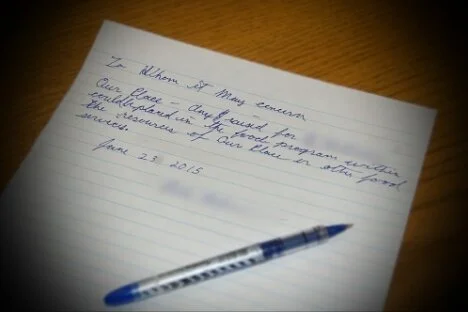 To Whom it May concern
Our Place - Any $ raised for
could b placed in the food program within
the resources of Our Place or other food
services.
June 23 2015